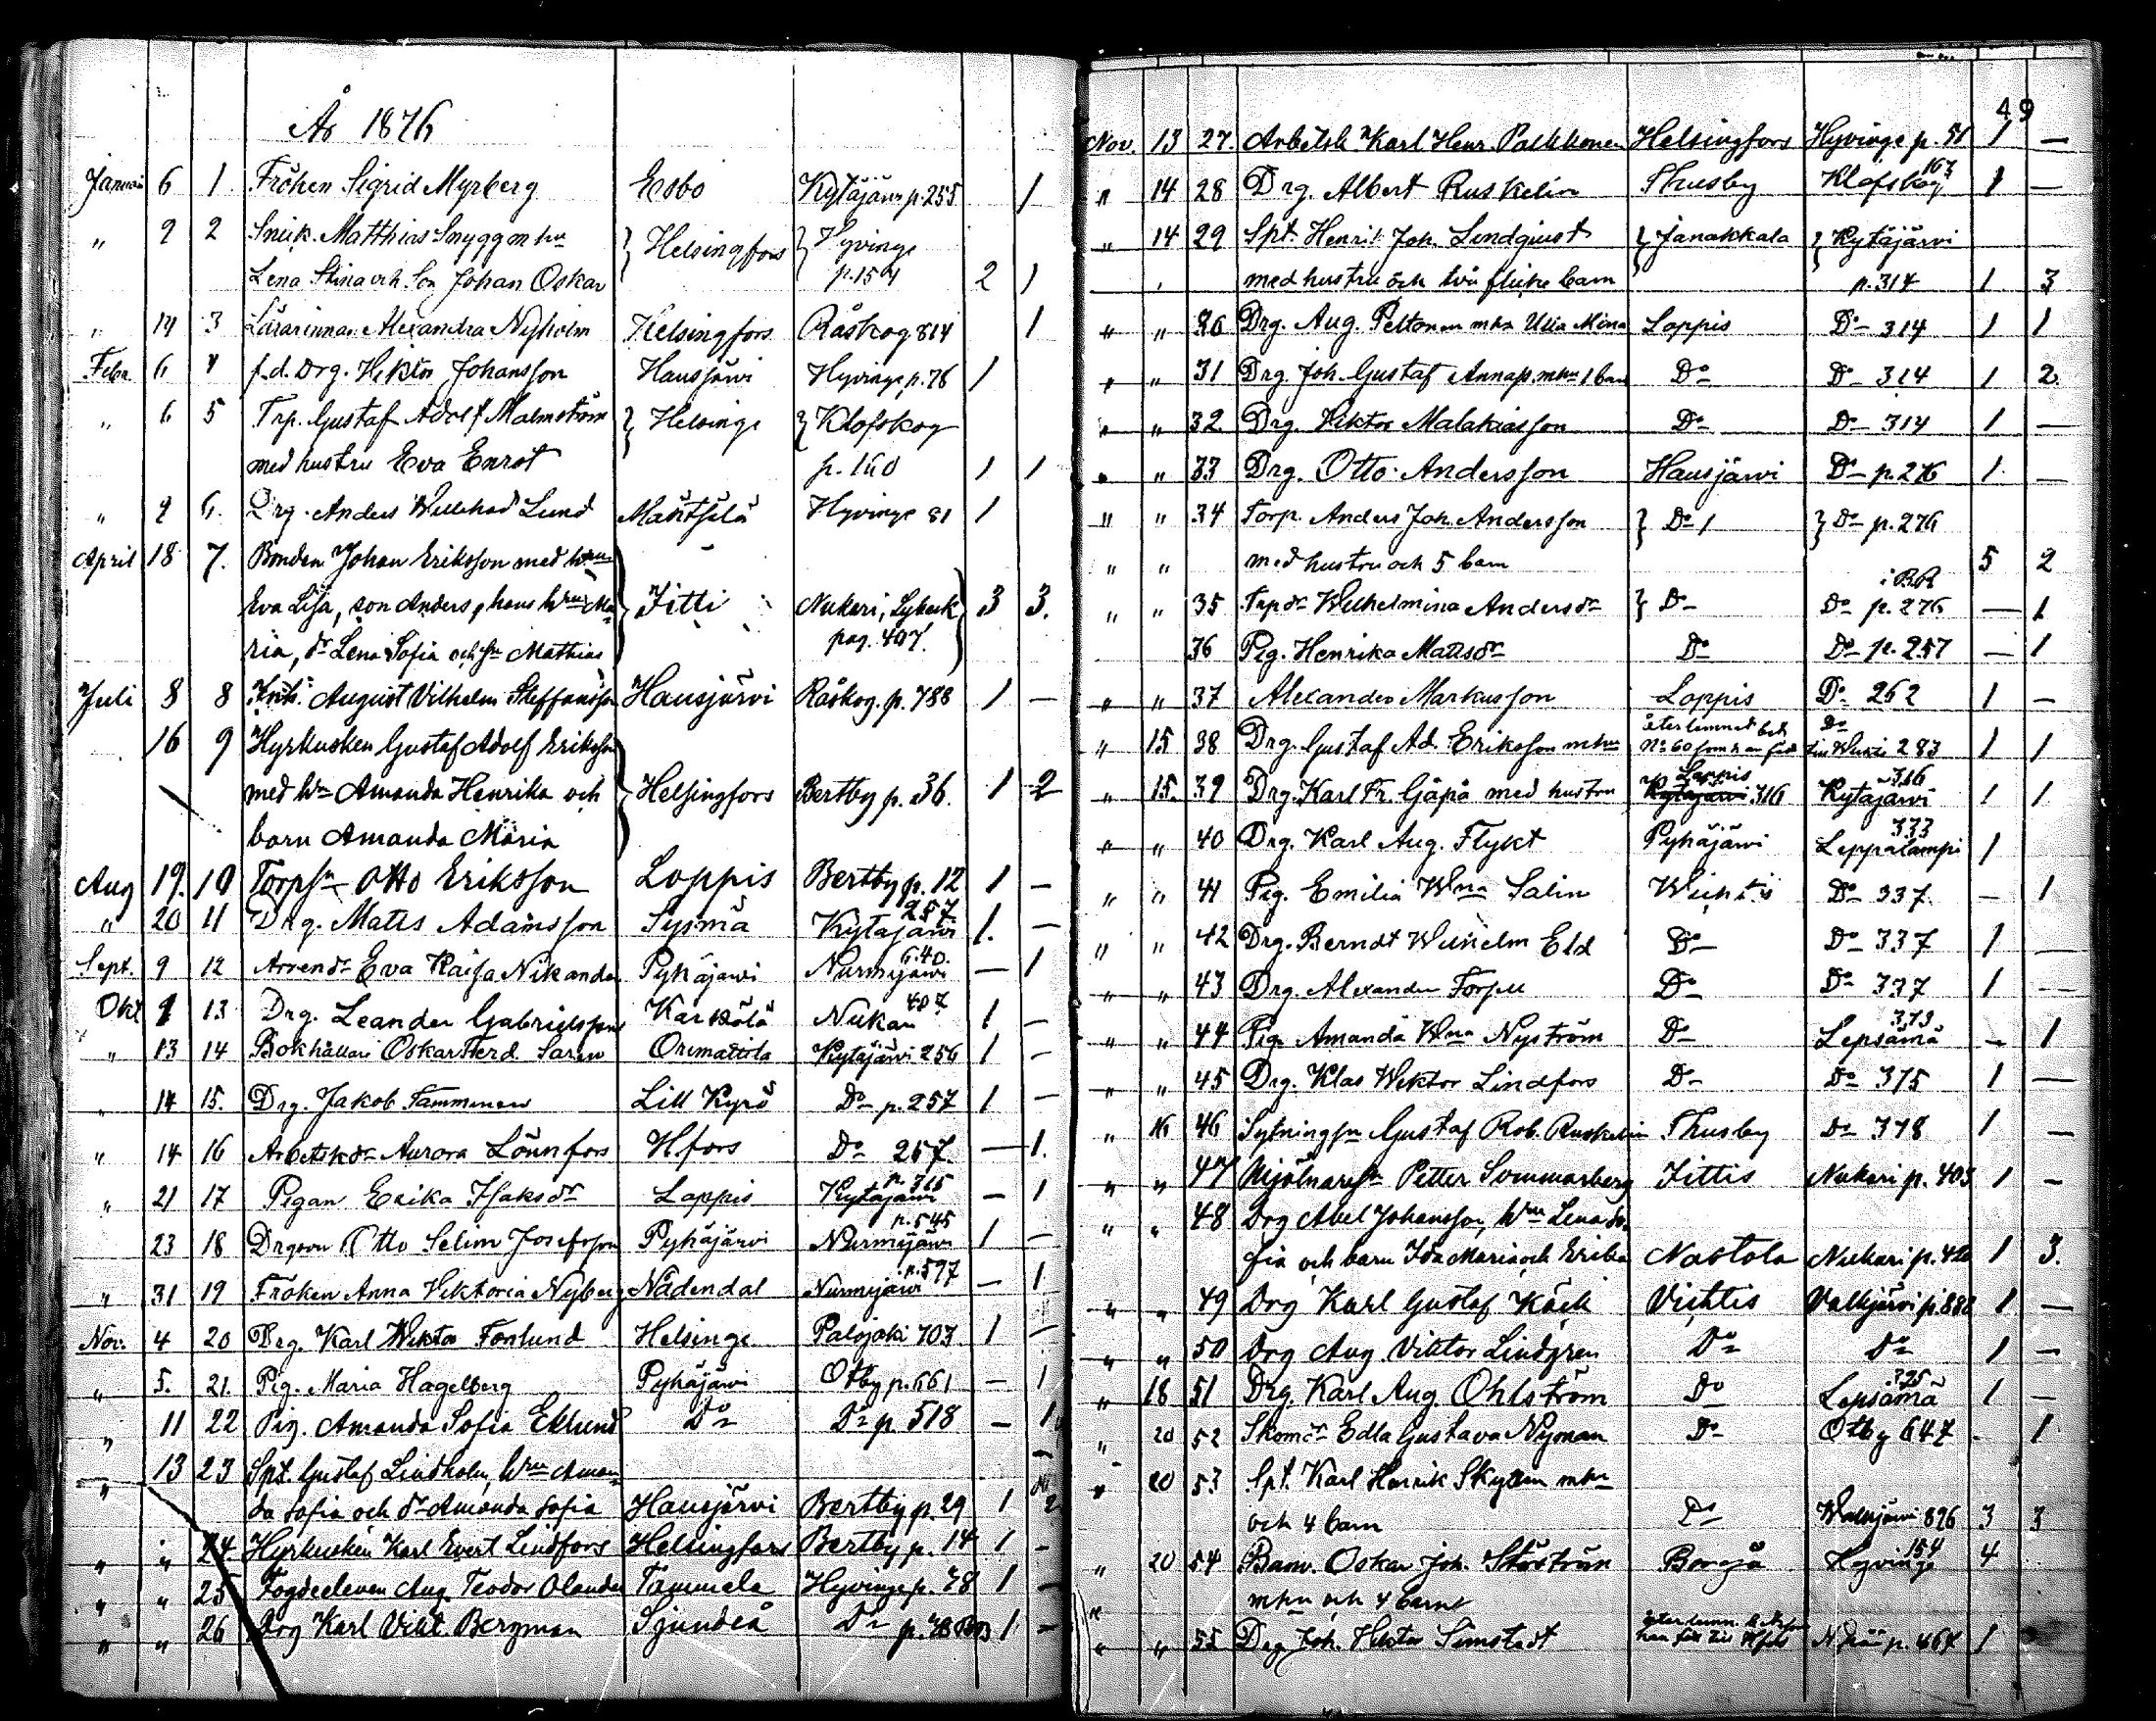 År 1876
Januari 6 1. Fröken Sigrid Myrberg Esbo Kytäjärvi p. 255 1
" 2 2 Snick. Matthias Snygg m hu } Helsingfors } Hyvinge
Lena Stina och Son Johan Oskar p. 154 2 1
" 14 3 Lärarinnan Alexandra Nyholm Helsingfors Råskog 814 1
Febr. 6 4 f.d. Drg. Hektor Johansson Hausjärvi Hyvinge p. 76 1
" 6 5 Trp. Gustaf Adolf Malmström } Helsinge } Klofskog
med hustru Eva Enrot p. 160 1 1
" 9 6. Drg. Anders Willehad Lund Mäntsälä Hyvinge 81 1
April 18 7. Bonden Johan Eriksson med hru
Eva Lisa, son Anders, hans hru Ma Jitti Nukari, Sybeck 3 3.
ria, dr Lena Sofia och sn Mathias pag. 407.
Juli 8 8 August Vilhelm Steffansson Hausjärvi Råskog. p. 788 1 —
16 9 Hyrkusken Gustaf Adolf Eriksson
med hru Amanda Henrika och Helsingfors Bertby p. 36. 1 2
barn Amanda Maria
Aug 19. 10 Torpsn Otto Eriksson Loppis Bertby p. 12 1 —
" 20 11 Drg. Matts Adamsson Sysmä Kytäjärvi 257. 1. —
Sept. 9 12 Arrendr Eva Kaisa Nikander Pyhäjärvi Nurmijärvi 640. — 1
Okt 1 13 Drg. Leander Gabrielsson Kärkölä Nukari 407 1 —
" 13 14 Bokhållare Oskar Ferd Saren Orimattila Kytäjärvi 256 1 —
" 14 15. Drg. Jakob Tamminen Lill Kyrö Do p. 257 1 —
" 14 16 Arbetskdr Aurora Lönnfors Hfors Do 257. — 1.
" 21 17 Pigan Erika Isaksdr Loppis Kytäjärvi p. 315 — 1
23 18 Drgson Otto Selim Josefsson Pyhäjärvi Nurmijärvi p. 545 1 —
" 31 19 Fröken Anna Viktoria Nyberg Nådendal Nurmijärvi p. 597 — 1
Nov. 4 20 Drg. Karl Viktor Forslund Helsinge Palojoki 703 1 —
" 5. 21. Pig. Maria Hagelberg Pyhäjärvi Otby p. 661 — 1
" 11 22 Pig. Amanda Sofia Eklund Do Do p. 518 — 1
" 13 23 Spt. Gustaf Lindholm, hru Aman
da Sofia och dr Amanda Sofia Hausjärvi Bertby p. 29 1 2
" " 24 Hyrkusken Karl Evert Lindfors Helsingfors Bertby p. 14 1 —
" " 25 Fogdeeleven Aug. Teodor Olander Tammela Hyvinge p. 78 1 —
" " 26 Drg Karl Vikt. Bergman Sjundeå Do p. 78 1 —
49
Nov. 13 27. Arbetsk Karl Henr. Palkkonen Helsingfors Hyvinge p. 51 1 —
" 14 28 Drg. Albert Ruskelin Thusby Klofskog 167 1 —
" 14 29 Spt. Henrik Joh. Lindqvist } Janakkala } Kytäjärvi
med hustru och två flicke barn p. 314 1 3
" " 30 Drg. Aug. Peltonen mhu Ulla Mina Loppis Do 314 1 1
" " 31 Drg. Joh. Gustaf Annaps. mhu 1 barn Do Do 314 1 2.
" " 32 Drg. Viktor Malakiasson Do Do 314 1 —
" " 33 Drg. Otto Andersson Hausjärvi Do p. 276 1. —
" " 34 Torp. Anders Joh. Andersson } Do } Do p. 276
" " med hustru och 5 barn 5 2
" " 35 Trpdr Wilhelmina Andersdr } Do Do p. 276 — 1
36 Pig. Henrika Mattsdr Do Do p. 257 — 1
" " 37 Alexander Markusson Loppis Do 262 1 —
" 15 38 Drg. Gustaf Ad. Eriksson mhu återlemnad bet. No 60 som han Do 283 1 1
" 15. 39 Drg. Karl Fr. Gäpä med hustru Loppis Kytäjärvi 316 Kytäjärvi 316 1 1
" " 40 Drg. Karl Aug. Flykt Pyhäjärvi Leppälampi 333 1
" " 41 Pig. Emilia Wma Salin Wichtis Do 337. — 1
" " 42 Drg. Berndt Wilhelm Eld Do Do 337 1 —
" " 43 Drg. Alexander Forsell Do Do 337 1 —
" " 44 Pig. Amanda Wma Nyström Do Lepsämä 373 — 1
" " 45 Drg. Klas Wiktor Lindfors Do Do 375 1 —
" 16 46 Sytningsn Gustaf Rob. Ruskelin Thusby Do 378 1 —
" " 47 Mjölnaresn Petter Sommarberg Jittis Nukari p. 403 1 —
" " 48 Drg Abel Johansson, hru Lena So
fia och barn Ida Maria och Erika Nastola Nukari p. 420 1 3.
" " 49 Drg Karl Gustaf Käck Vichtis Valkjärvi p. 888 1 —
" " 50 Drg Aug. Viktor Lindgren Do Do 1 —
" 18 51 Drg. Karl Aug. Ohlström Do Lepsämä 375 1 —
" 20 52 Skomdr Edla Gustava Nyman Do Otby 647 1
" 20 53 Spt. Karl Henrik Skyttén mhu
och 4 barn Do Walkjärvi 896 3 3
" 20 54 Banv. Oskar Joh. Borgå Hyvinge 154 4
" mhu och 4 barn
" " 55 Drg. Joh. Viktor Simstedt p. 467 1